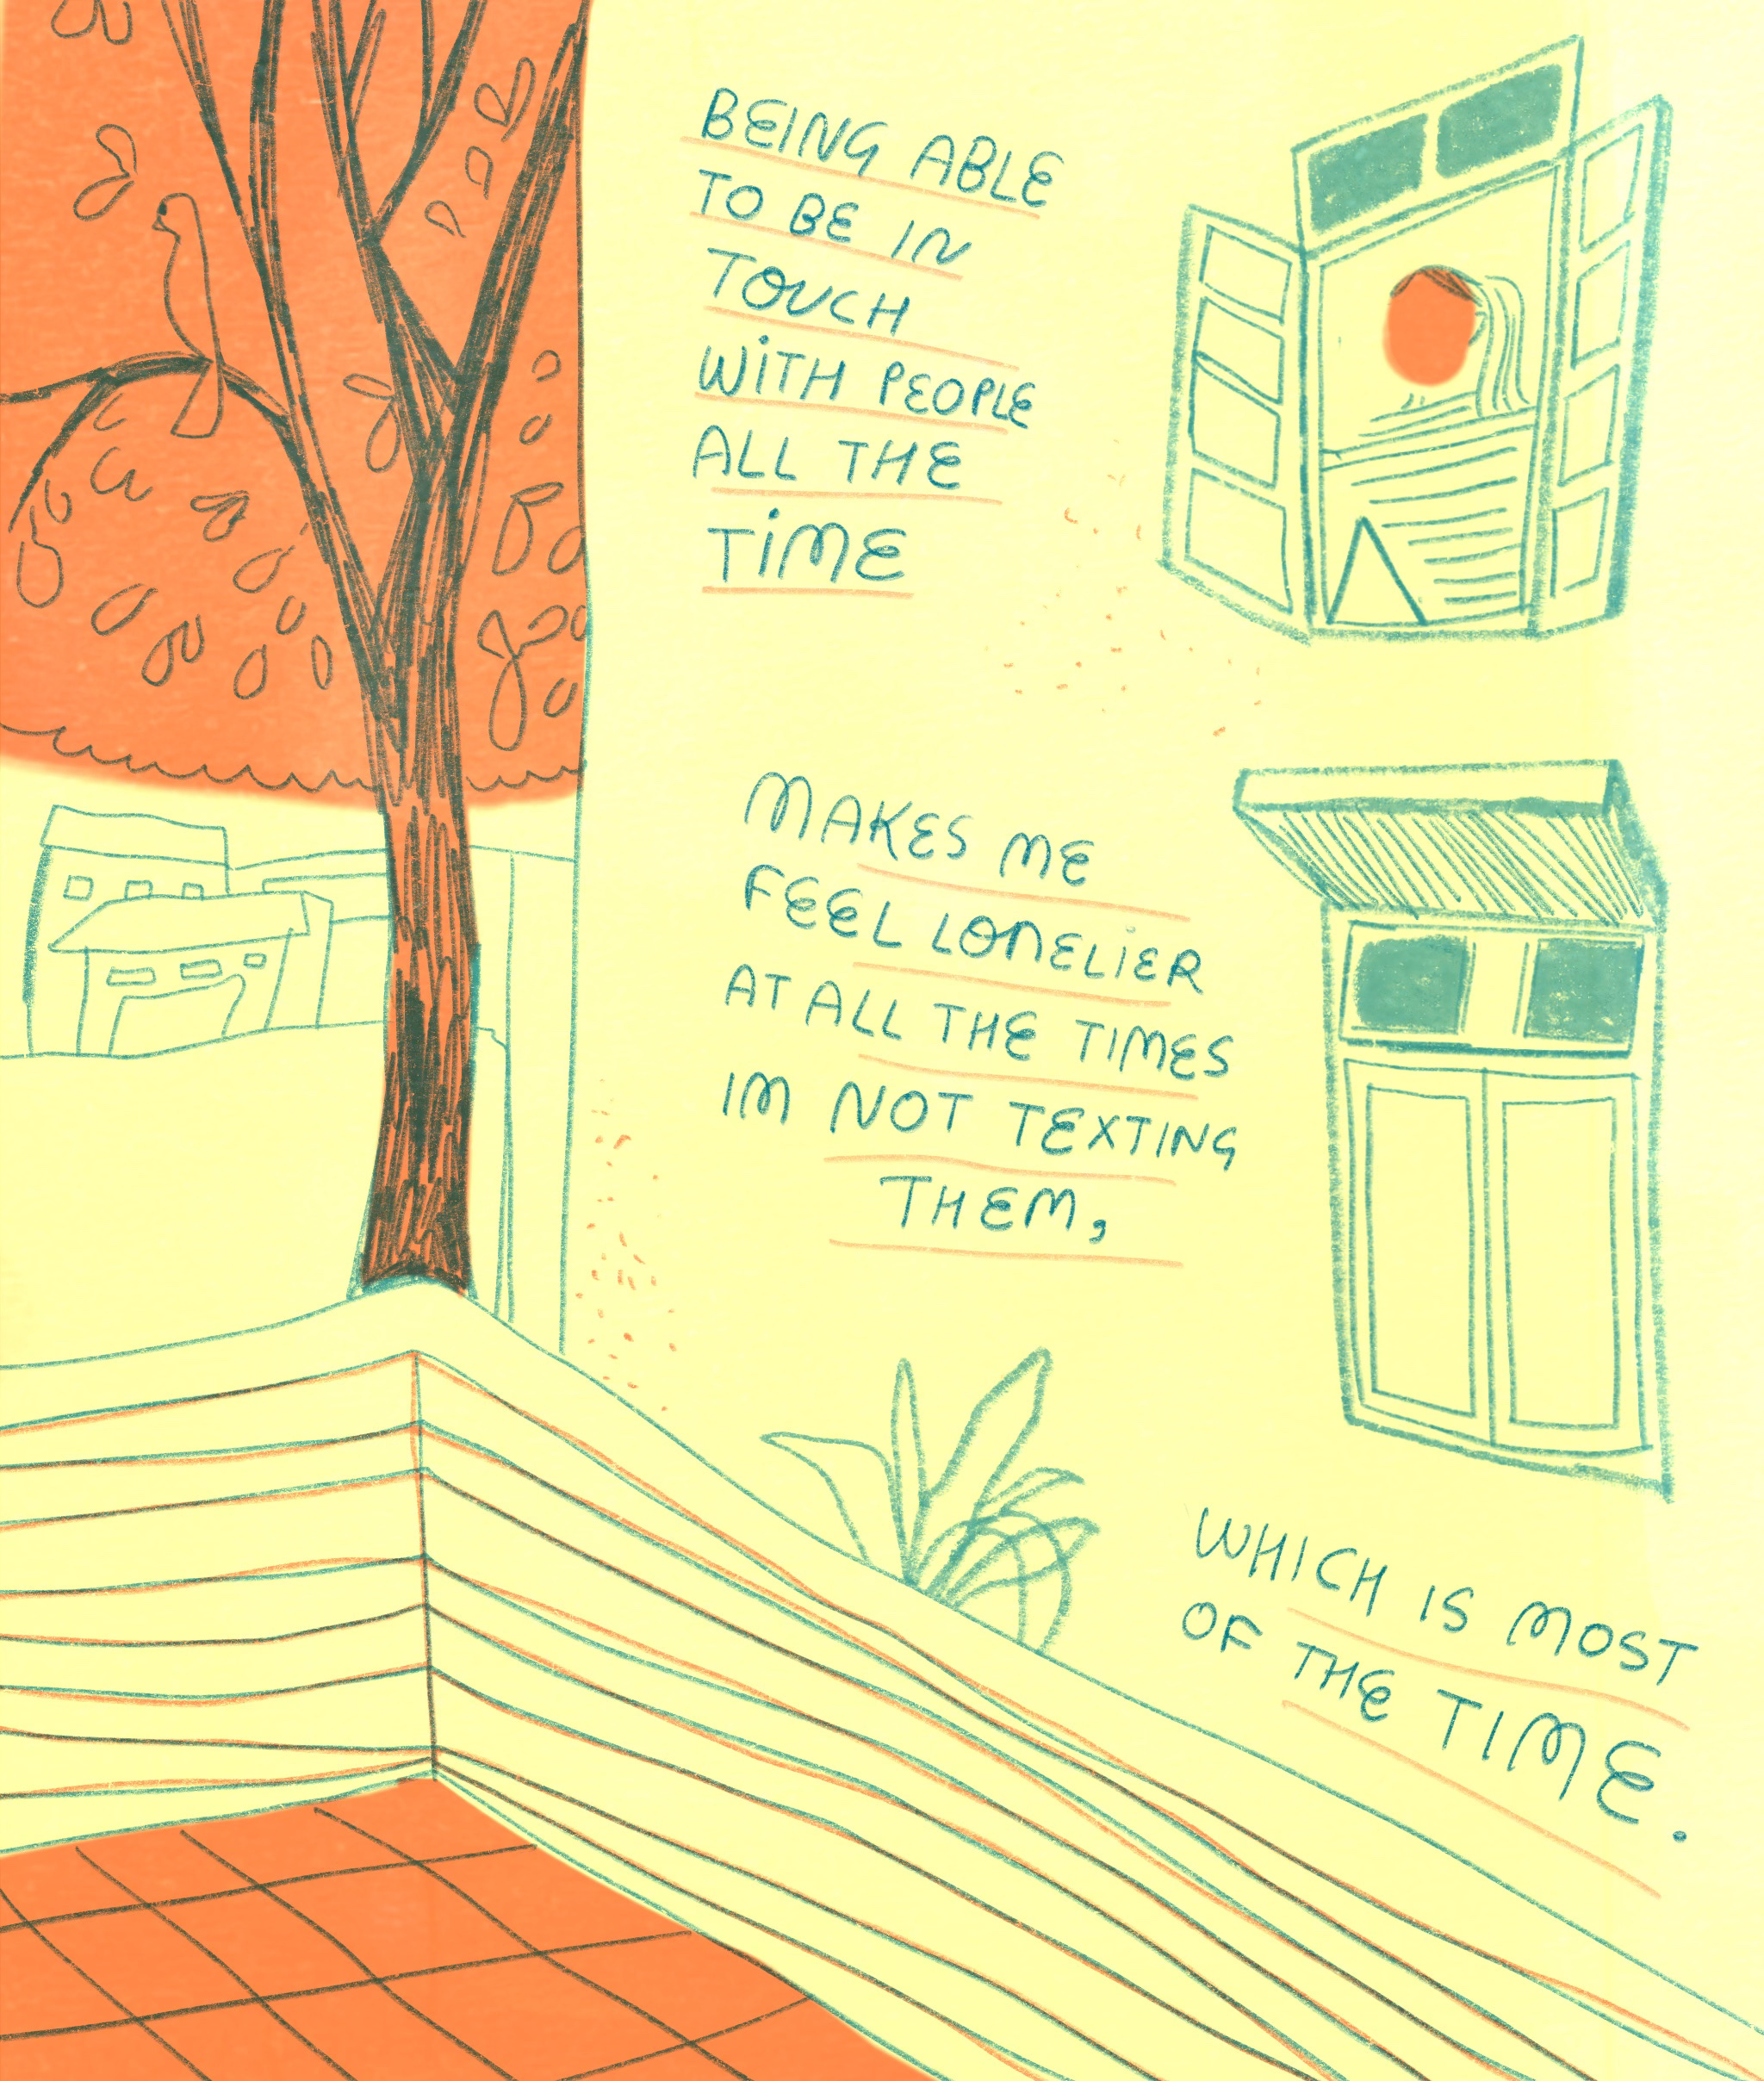 BEING ABLE
TO BE IN
TOUCH
WITH PEOPLE
ALL THE
TIME
MAKES ME
FEEL LONELIER
AT ALL THE TIMES
IM NOT TEXTING
THEM,
WHICH IS MOST
OF THE TIME.